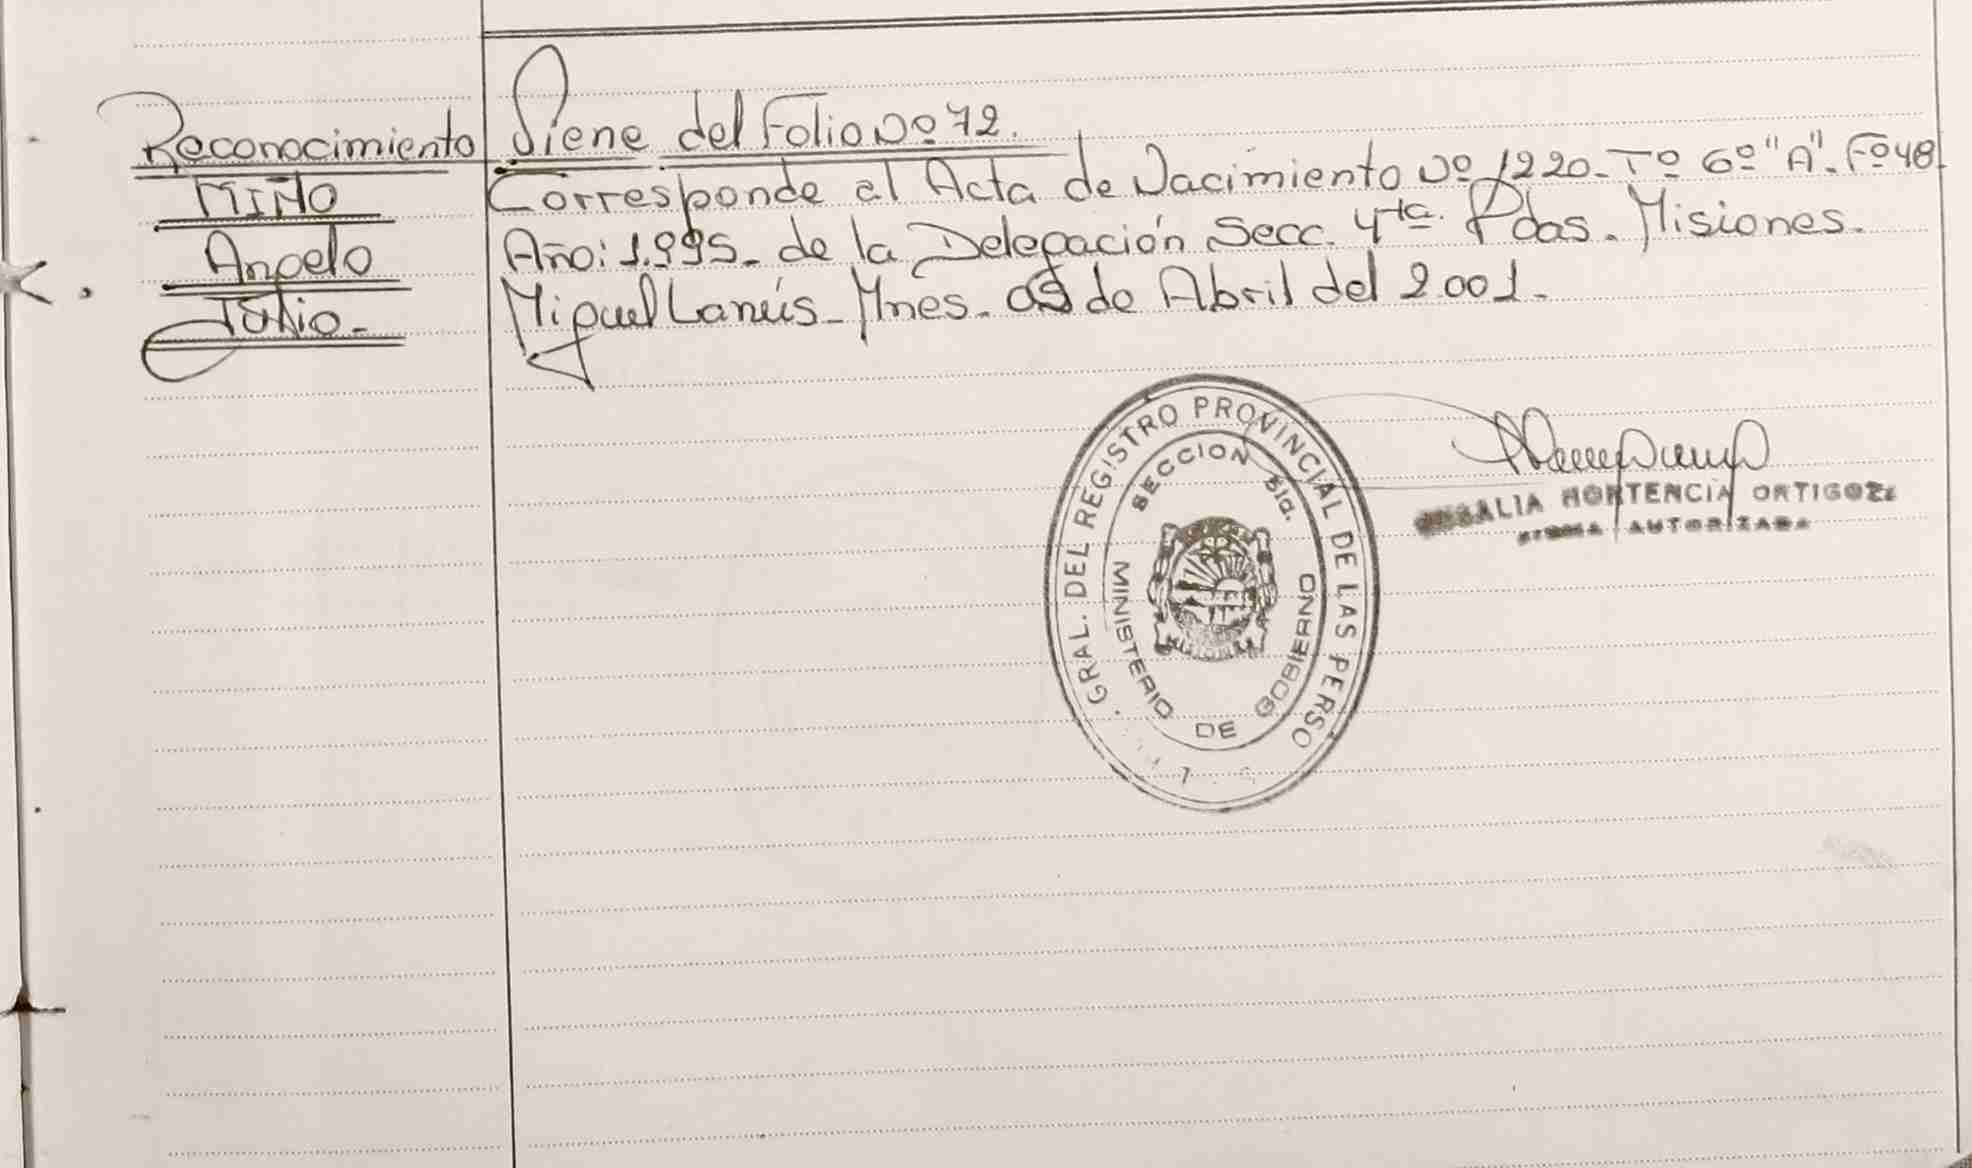 Reconocimiento
MIÑO
Angelo
Julio.-
Viene del Folio Nº 72.
Corresponde al Acta de Nacimiento Nº 1220.- Tº 6º "A". Fº 48
Año: 1.995.- de la Delegación Secc. 4ta. Pdas. Misiones.
Miguel Lanús.- Mnes. 05 de Abril del 2.001.-
GRAL. DEL REGISTRO PROVINCIAL DE LAS PERSO
SECCION 5ta.
MINISTERIO DE GOBIERNO
HORTENCIA ORTIGOZA
FIRMA AUTORIZADA